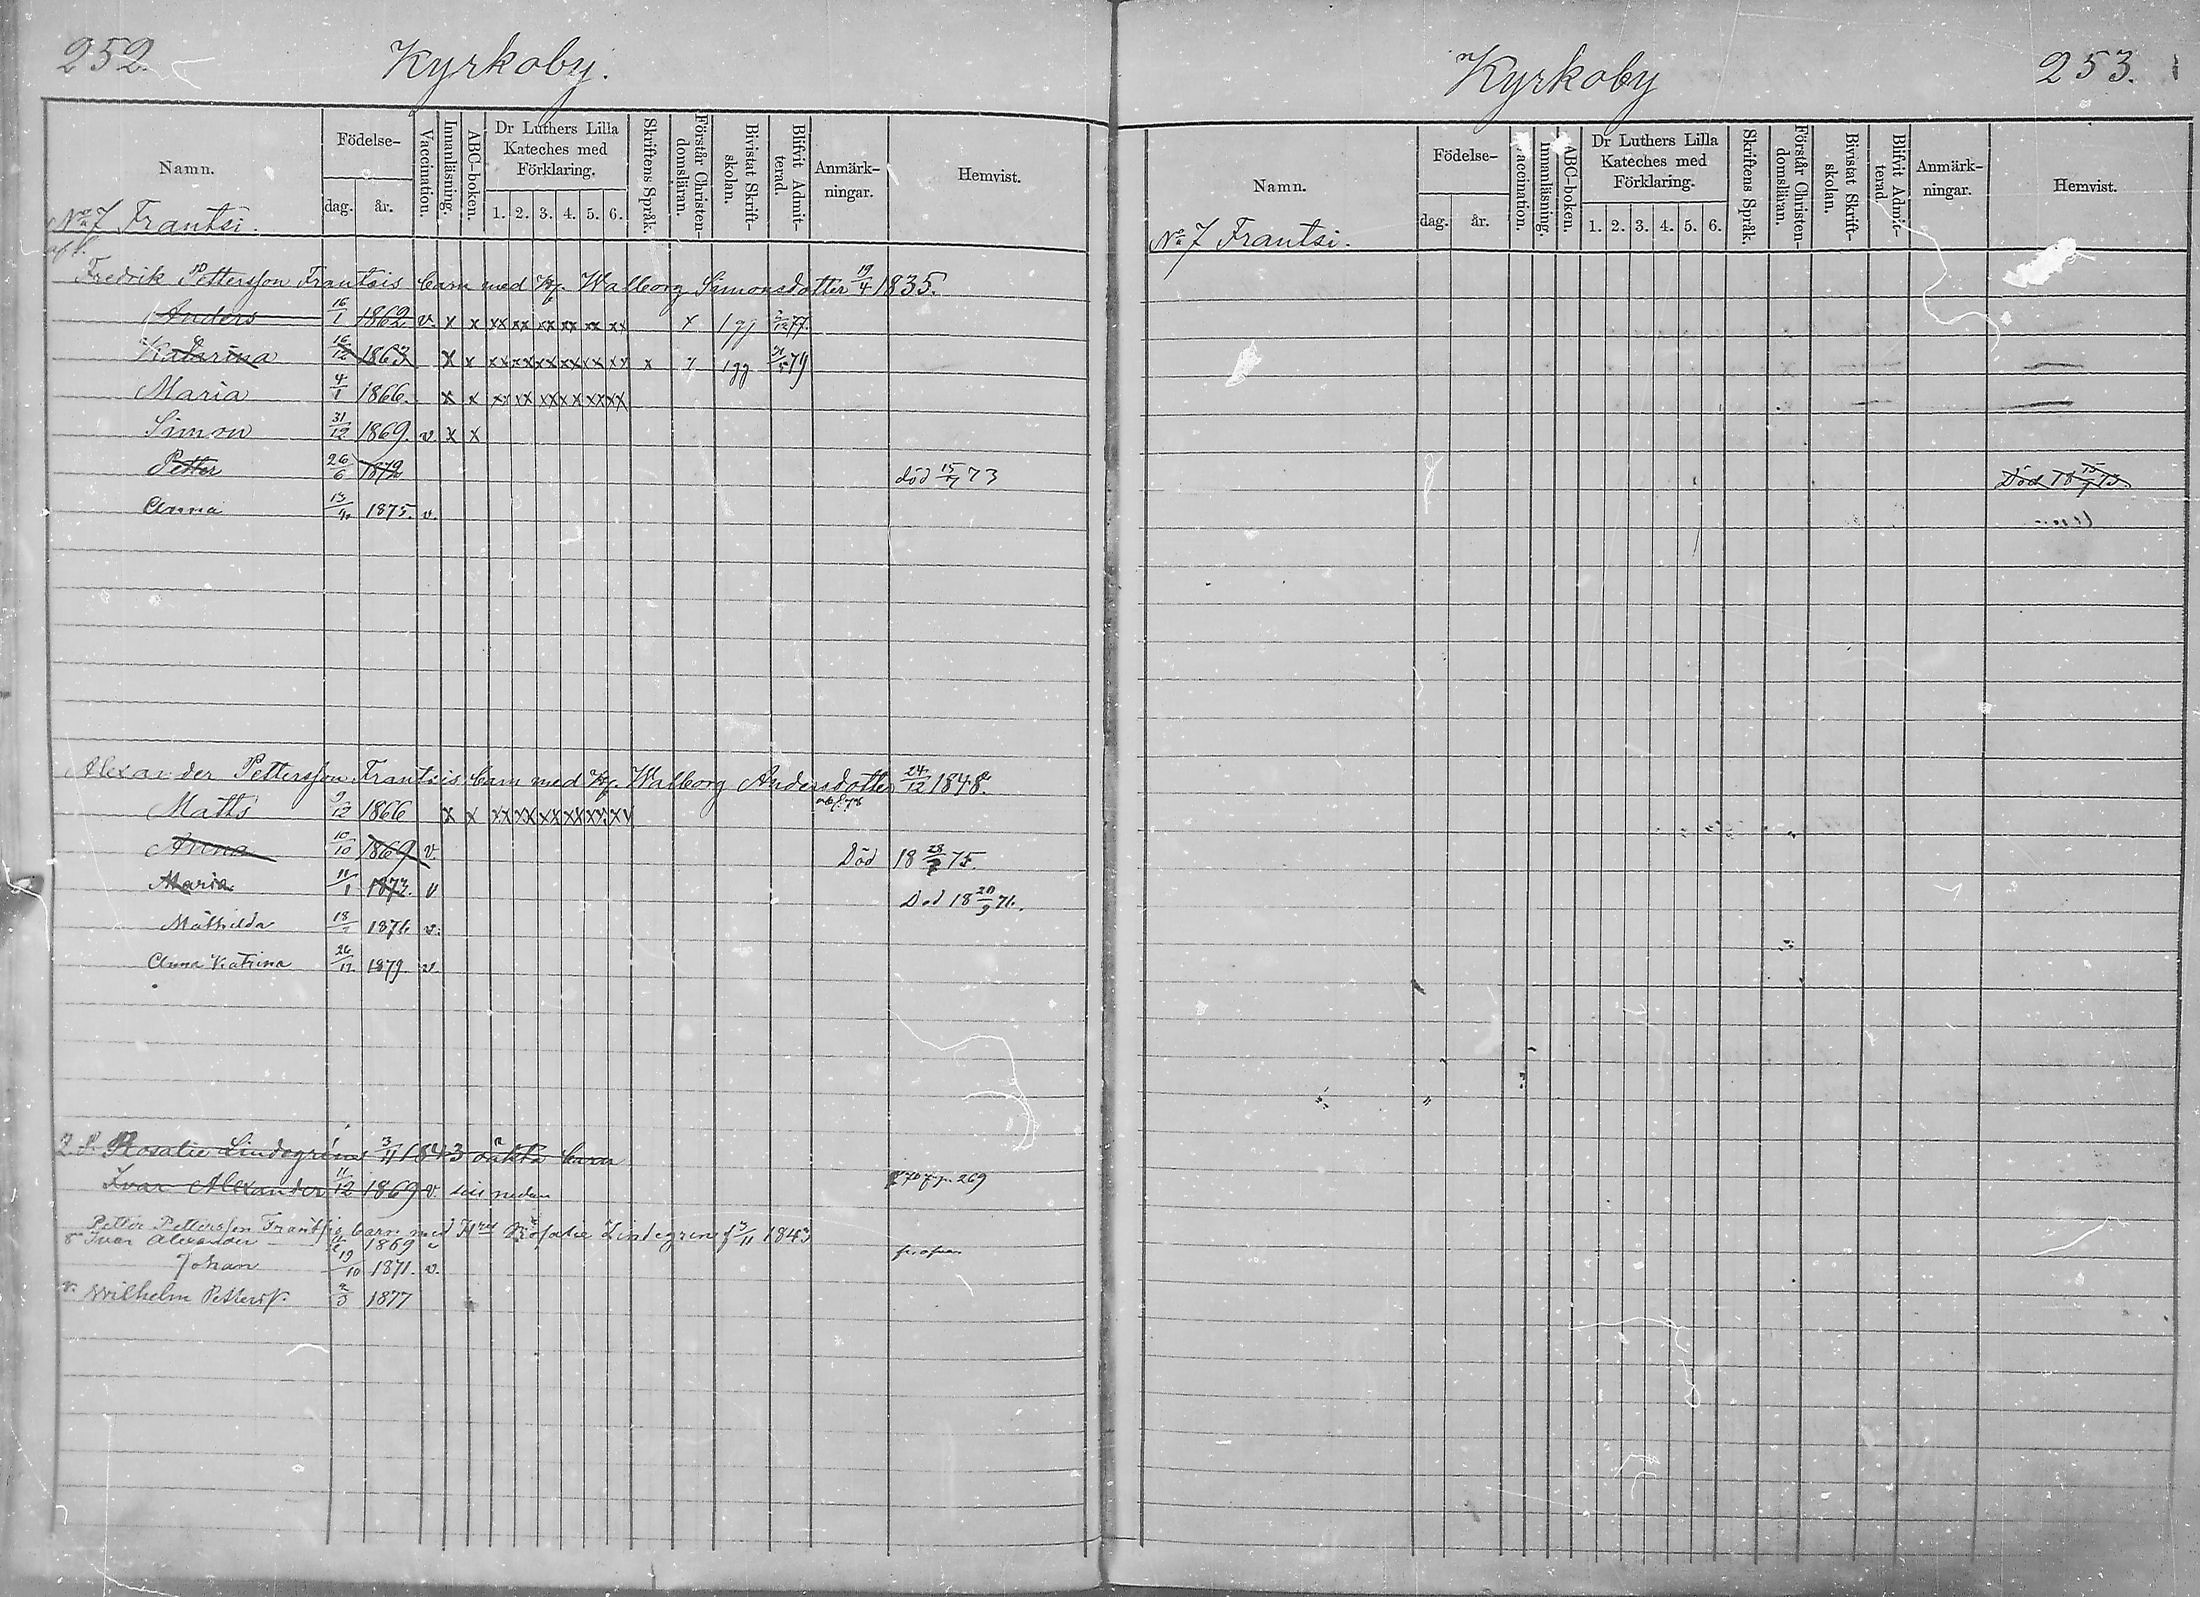 252.
Kyrkoby.
Namn. Födelse- dag. år. Vaccination. Innanläsning. ABC-boken. Dr Luthers Lilla Kateches med Förklaring. 1. 2. 3. 4. 5. 6. Skriftens Språk. Förstår Christen-domsläran. Bivistat Skrift-skolan. Blifvit Admit-terad. Anmärk-ningar. Hemvist.
No 7 Frantsi.
Fredrik Pettersson Frantsis barn med H. Walborg Simonsdotter 19/4 1835.
Anders 16/1 1862 v. x x xx xx xx xx xx xx x 1 gg 2/12 77.
Katarina 16/12 1863 x x xx xx xx xx xx xx x x 1 gg 31/5 79
Maria 4/1 1866. x x xx xx xx xx xx xx
Simon 31/12 1869. v. x x
Petter 26/6 1872 död 15/7 73
Anna 13/11 1875. v.
Alexander Pettersson Frantsis barn med H. Walborg Andersdotter 24/12 1848.
Matts 9/12 1866 x x xx xx xx xx xx xx
Anna 10/10 1869 v. Död 18 28/7 75.
Maria 11/1 1873. v Död 18 20/9 76.
Mathilda 18/7 1876 v.
Anna Katrina 26/12 1879. v
Rosalie Lindegrens 3/11 1843 oäkta barn
Ivar Alexander 11/12 1869 v. se nedan p. 269
Petter Pettersson Frantsis barn med Rosalie Lindegren f 3/11 1843
Ivar Alexander 11/12 1869 v
Johan 19/10 1871. v.
v. Wilhelm Petters. 2/3 1877
Kyrkoby
253.
Namn. Födelse- dag. år. Vaccination. Innanläsning. ABC-boken. Dr Luthers Lilla Kateches med Förklaring. 1. 2. 3. 4. 5. 6. Skriftens Språk. Förstår Christen-domsläran. Bivistat Skrift-skolan. Blifvit Admit-terad. Anmärk-ningar. Hemvist.
No 7 Frantsi.
Död 18 15/7 73.